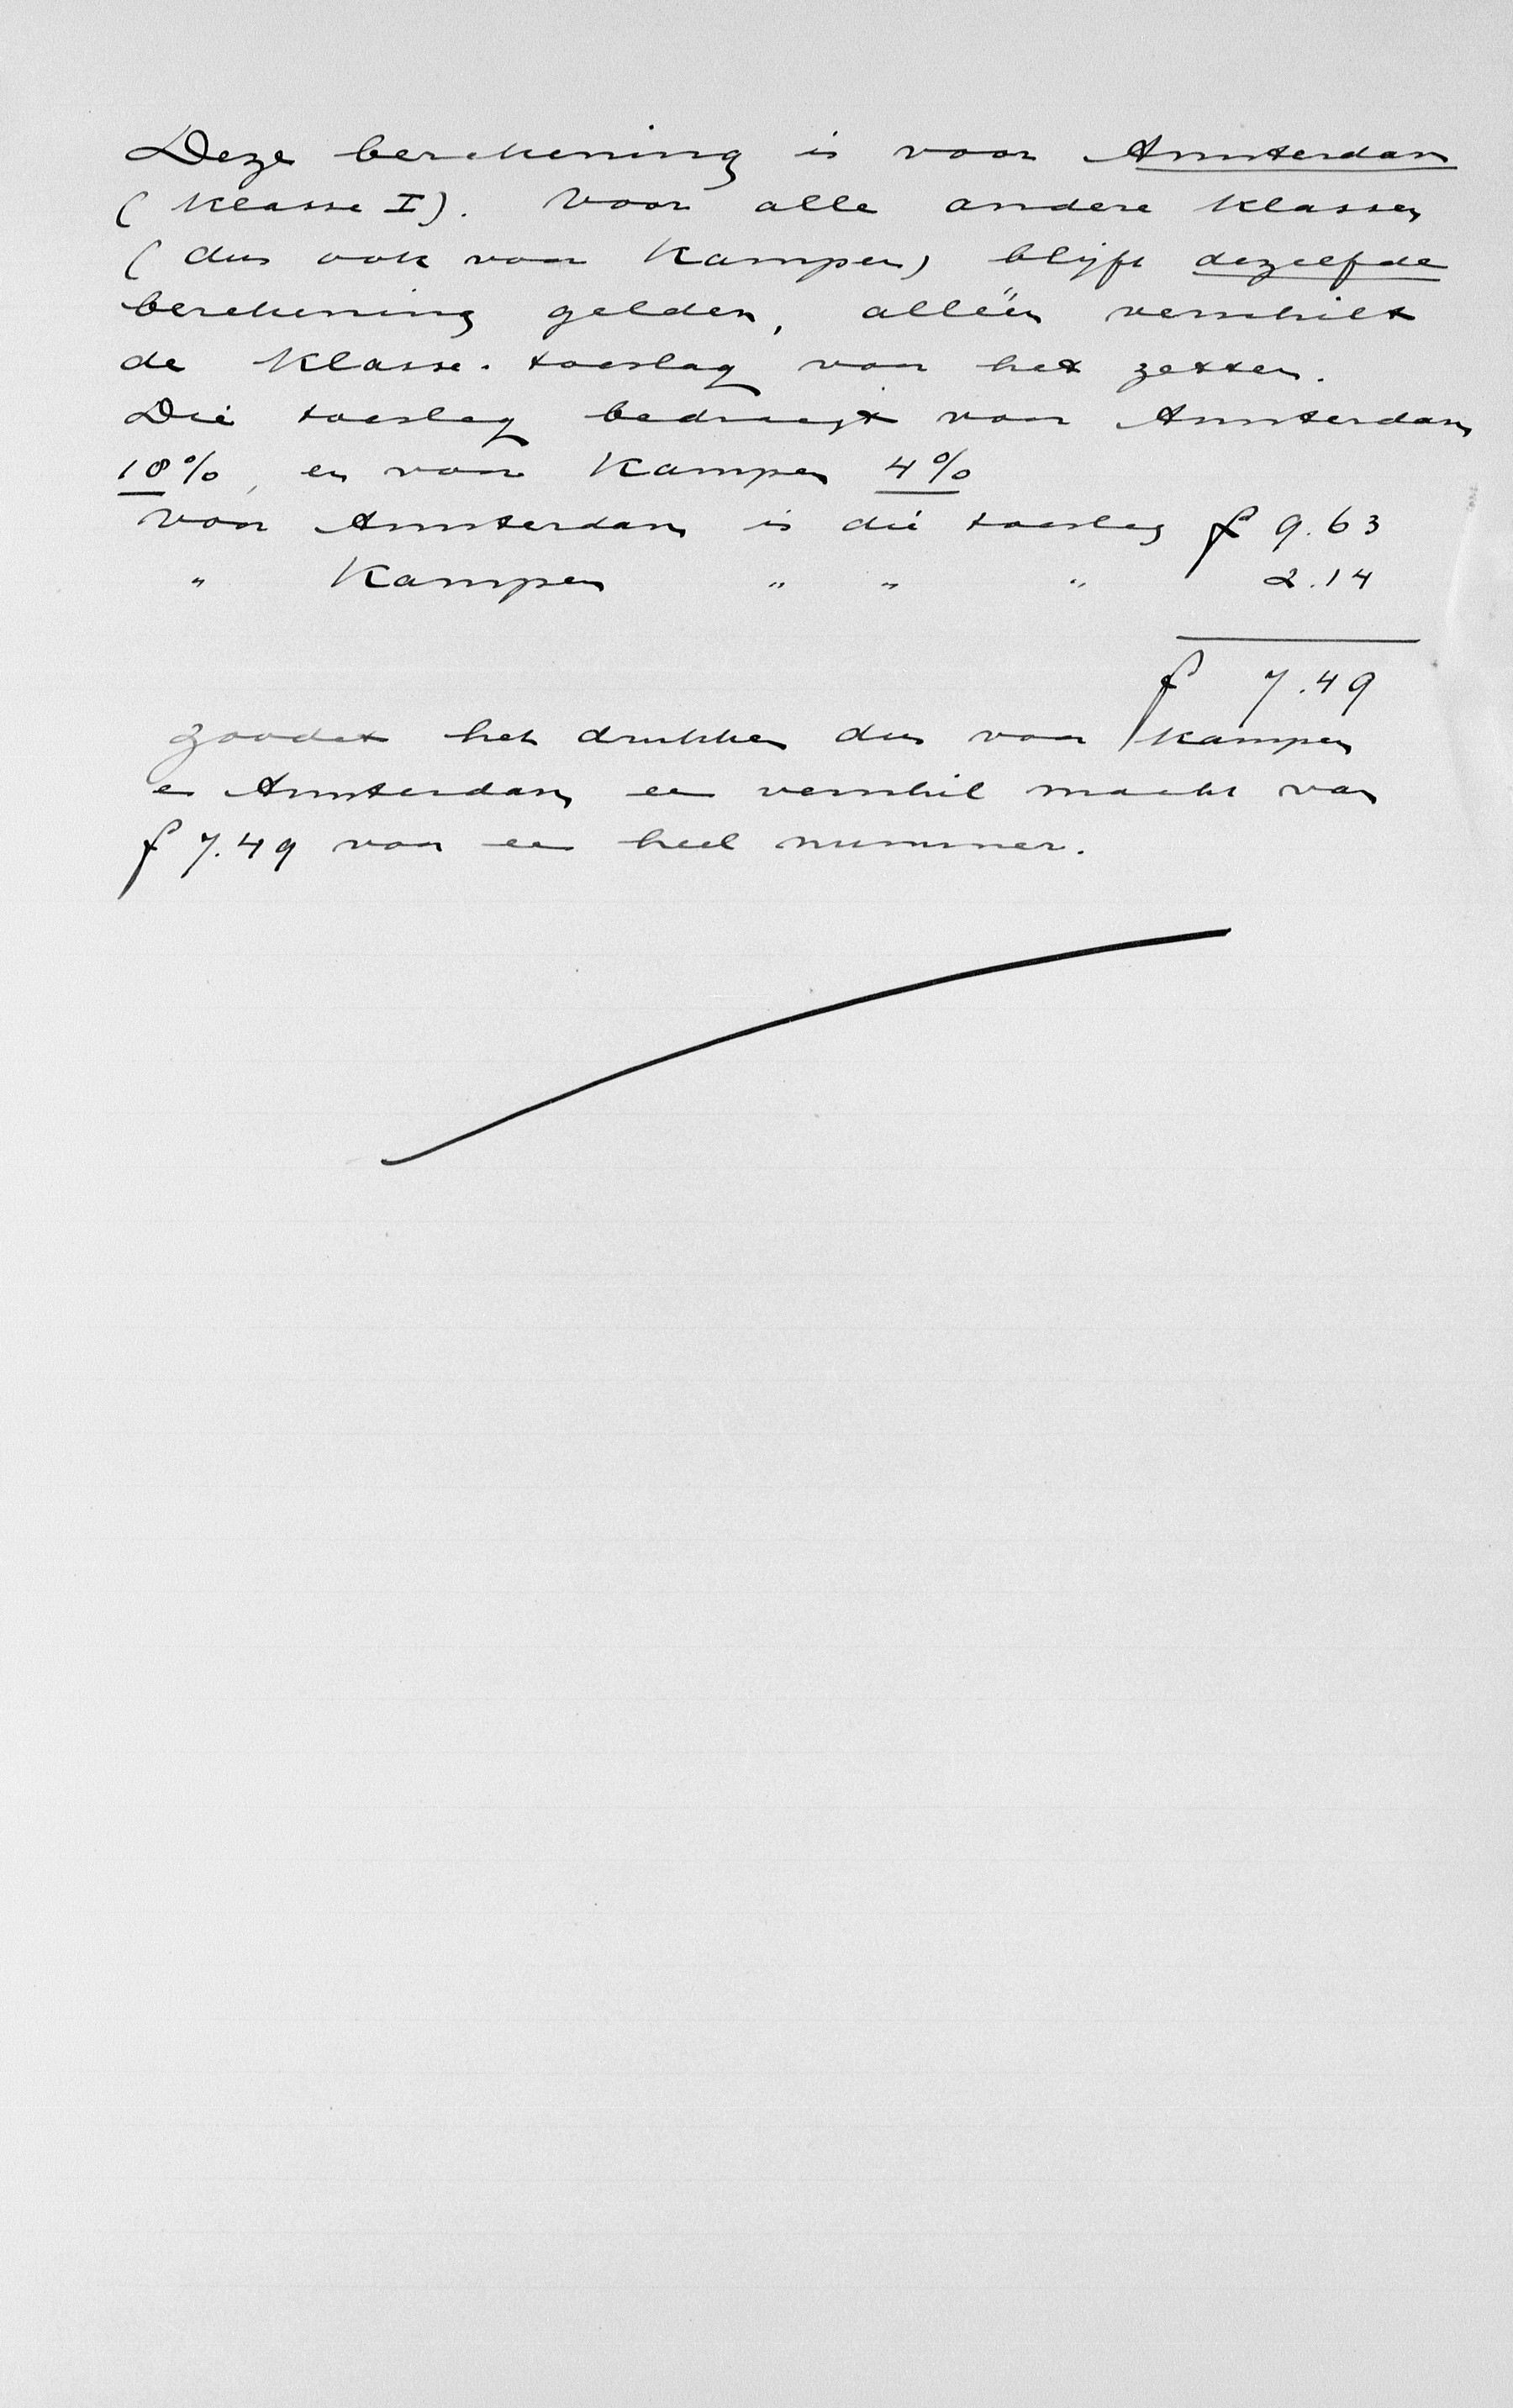 Deze berekening is voor Amsterdam
(Klasse I). Voor alle andere klassen
(dus ook voor Kampen) blijft dezelfde
berekening gelden, alléén verschilt
de Klasse-toeslag voor het zetten.
Die toeslag bedraagt voor Amsterdam
18%, en voor Kampen 4%
Voor Amsterdam is die toeslag f 9.63
" Kampen " " " 2.14
f 7.49
zoodat het drukken dus voor Kampen
en Amsterdam een verschil maakt van
f 7.49 voor een heel nummer.